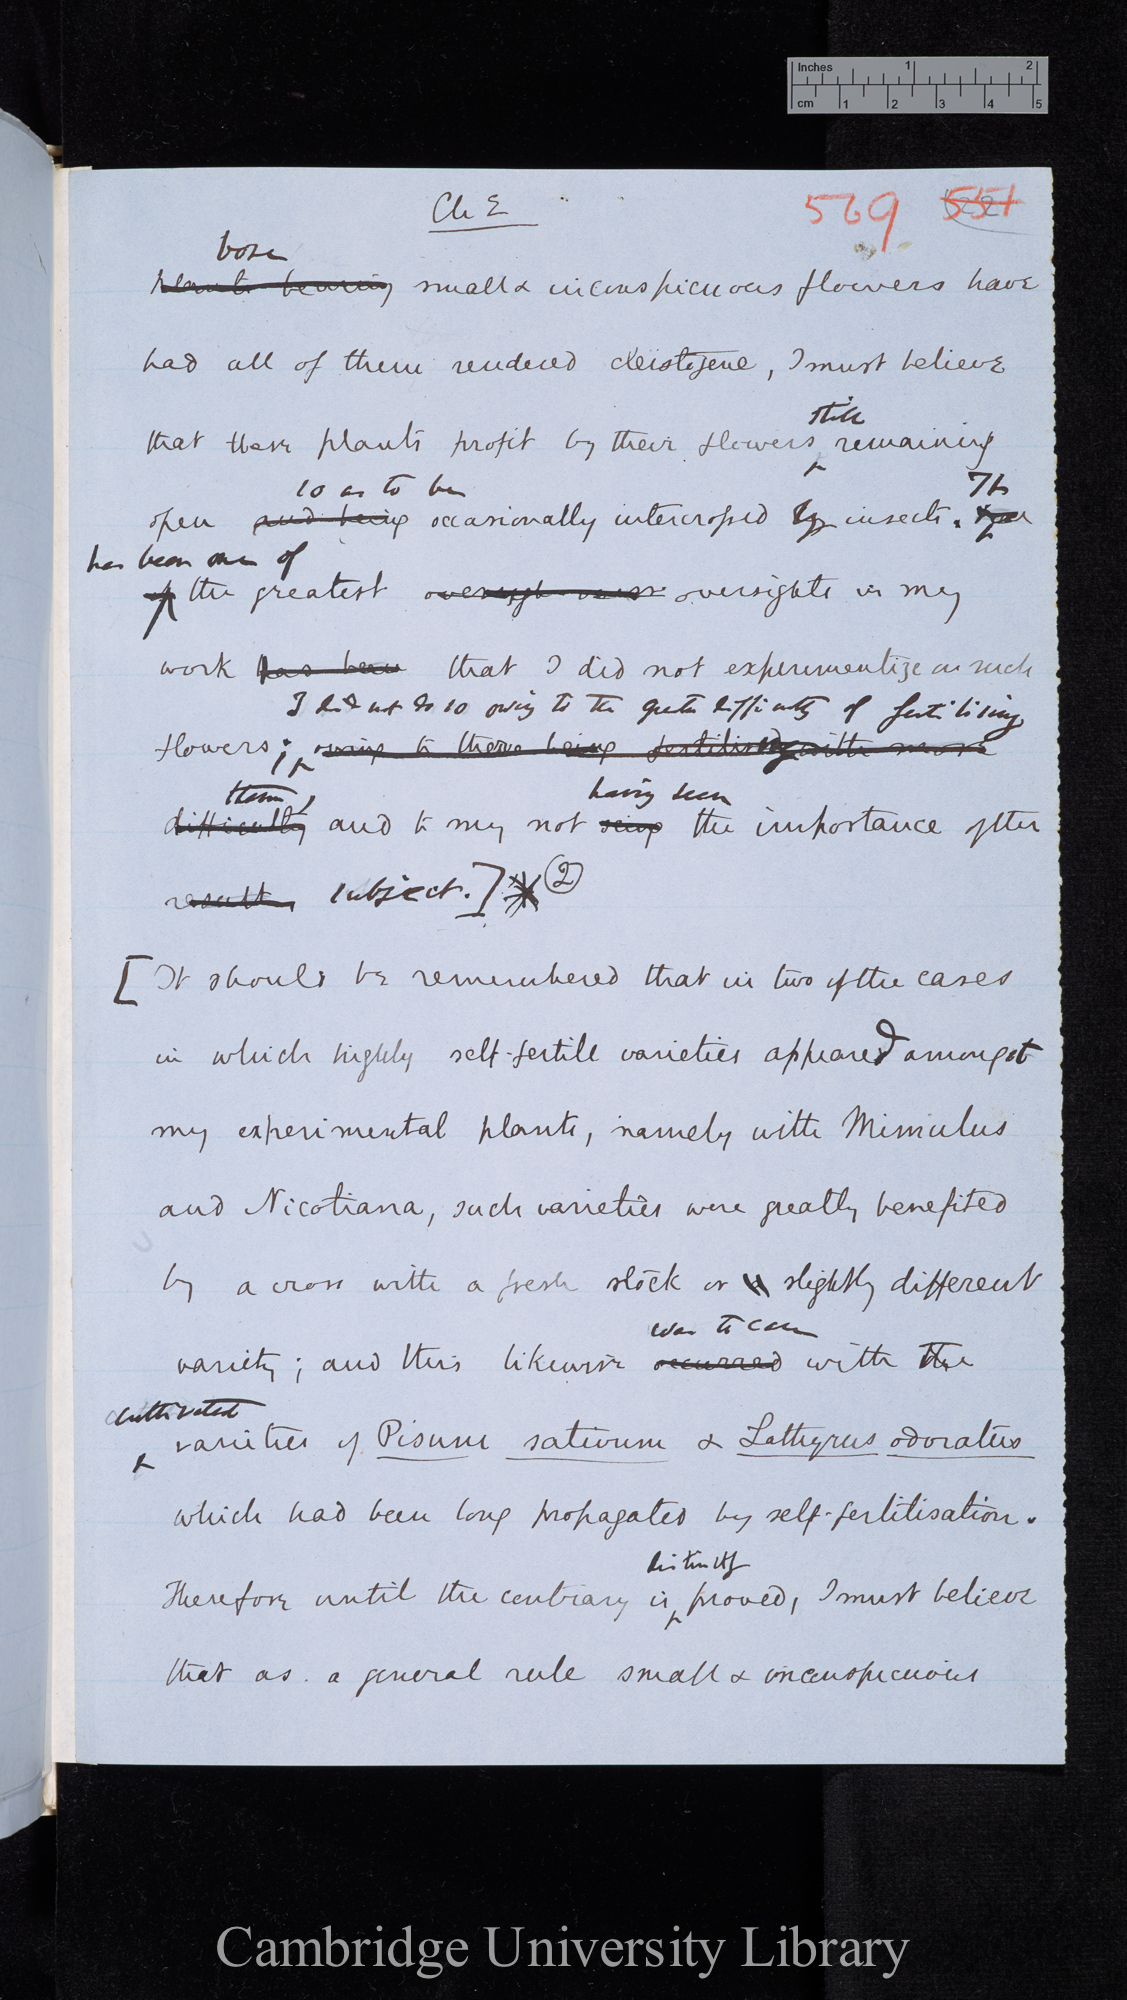 Inches 1 2
cm 1 2 3 4 5
Ch E
569 551
bore
plants bearing small & inconspicuous flowers have
had all of them rendered cleistogene, I must believe
that these plants profit by their flowers remaining
still
so as to be
open and being occasionally intercrossed by insects. It
has been one of
the greatest oversights in my
work has been that I did not experimentize on such
I did not do so owing to the greater difficulty of fertilising
flowers; owing to there being fertilised with more
them, having seen
difficulty and to my not seeing the importance of the
result subject.] 2
[It should be remembered that in two of the cases
in which highly self-fertile varieties appeared amongst
my experimental plants, namely with Mimulus
and Nicotiana, such varieties were greatly benefited
by a cross with a fresh stock or slightly different
was the case
variety; and this likewise occurred with the
cultivated
varieties of Pisum sativum & Lathyrus odoratus
which had been long propagated by self-fertilisation.
distinctly
Therefore until the contrary is proved, I must believe
that as a general rule small & inconspicuous
Cambridge University Library